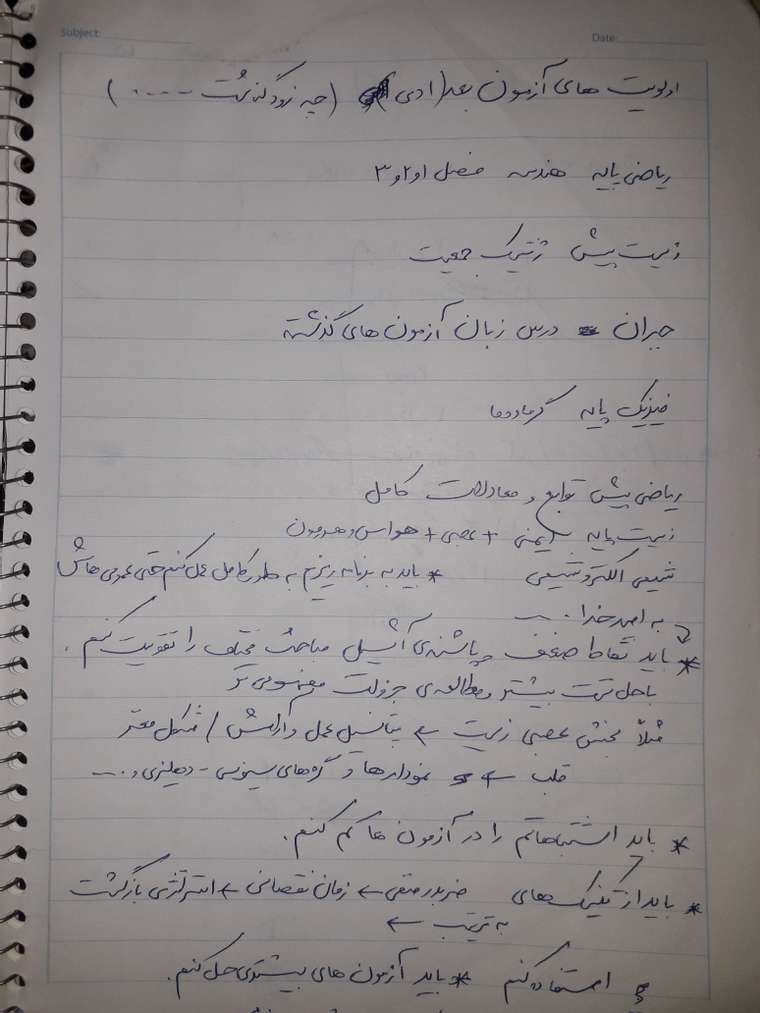 Subject:
Date:
اولویت های آزمون بعد (۱دی) (چه زود گذشت ....)
ریاضی پایه هندسه فصل ۱و۲و۳
زیست پیش ژنتیک جمعیت
جبران درس زبان آزمون های گذشته
فیزیک پایه گرما و دما
ریاضی پیش توابع و معادلات کامل
زیست پایه ایمنی + عصبی + حواس و هورمون
شیمی الکتروشیمی * باید به برنامه ریزیم به طور کامل عمل کنم حتی عمومی هاش
به امید خدا ....
* باید نقاط ضعف و پاشنه ی آشیل مباحث مختلف را تقویت کنم.
با حل تست بیشتر و مطالعه ی جزوات مفهومی تر
مثلاً بخش عصبی زیست ← پتانسیل عمل و آرامش / شکل مغز
قلب ← نمودارها و گره های سینوسی - دهلیزی و ....
* باید اشتباهاتم را در آزمون ها کم کنم.
* باید از تکنیک های ضربدر منفی ← زمان نقصانی ← استراتژی بازگشت
به ترتیب ←
استفاده کنم * باید آزمون های بیشتری حل کنم.